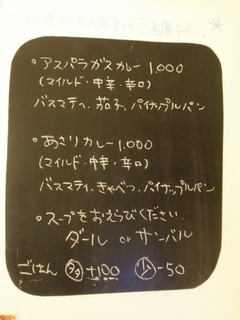 ○アスパラガスカレー 1,000
(マイルド・中辛・辛口)
バスマティ、茄子、パイナップルパン
○あさりカレー 1,000
(マイルド・中辛・辛口)
バスマティ、きゃべつ、パイナップルパン
○スープをおえらびください。
ダール or サンバル
ごはん 多 +100 少 -50